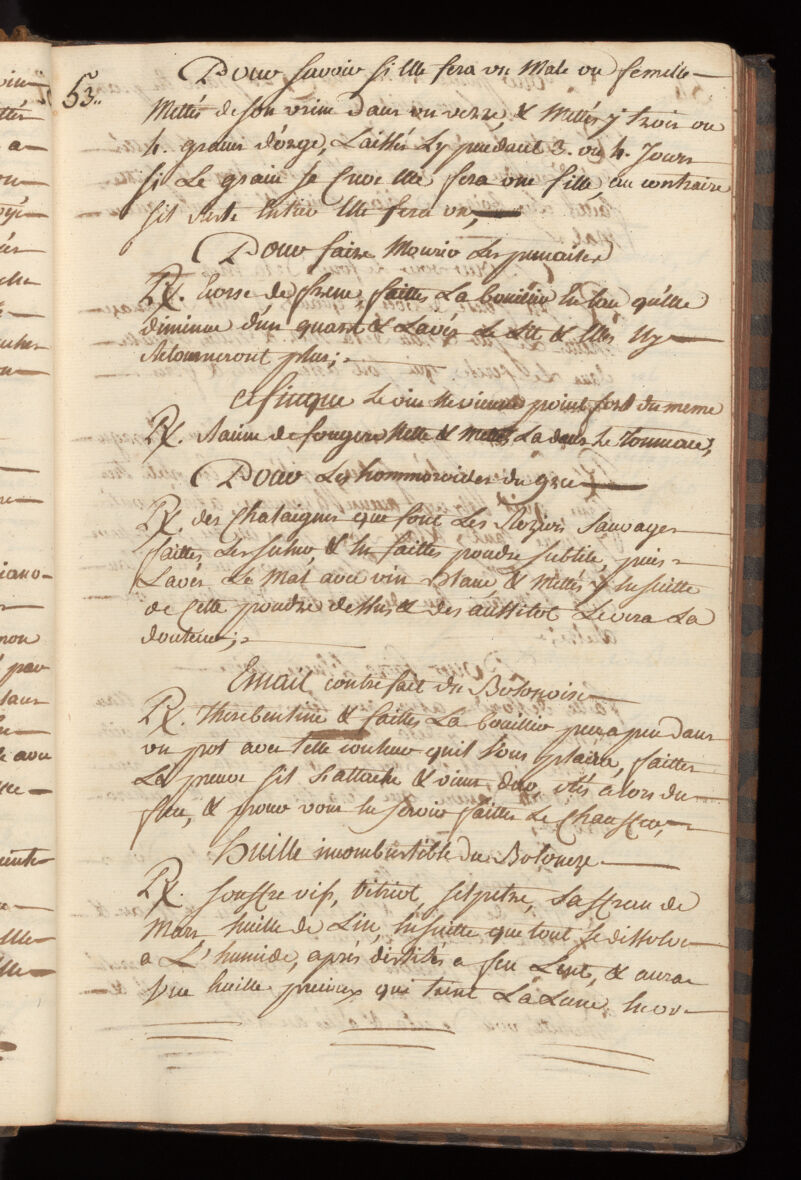 53.
Pour savoir si Elle fera un Male ou femelle
Mettés de son urine dans un verre, & Mettés y trois ou
4. grains d'orge, Laissés Ly pendant 3. ou 4. Jours
si Le grain se Creve Elle fera une fille, au contraire
sil Reste Entier Elle fera un,
Pour faire Mourir Les punaises
Rx. Ecorse de frene, faittes La bouillir En Eau qu'elle
diminue d'un quart & Lavés Le Lit & Elles Ny
Retourneront plus;
Afinque Le vin Ne vienne point fort du meme
Rx. Racine de fougere Nette & Mettés La dans Le Tonneau,
Pour Les hommoroides du grec
Rx. des Chataignes que font Les Rosiers Sauvages
faittes Les secher, & En faittes poudre subtile, puis
Lavés Le Mal avec vin Blanc, & Mettés y Ensuitte
de Cette poudre dessus & des aussitot Levera La
douleur;
Email contrefait du Bolonois
Rx. Therebentine & faittes La bouillir peu a peu dans
un pot avec telle couleur quil vous plaira, faittes
La preuve sil s'attache & vient dur, otés alors du
feu, & pour vous En servir faittes Le Chauffer,
huille incombustible du Boloneze
Rx. Souffre vif, Vitriol, selpetre, saffran de
Mars huille de Lin, Ensuitte que tout se dissolve
a L'humide, aprés distilés a feu Lent, & aura
une huille precieux qui teint La Lune En or